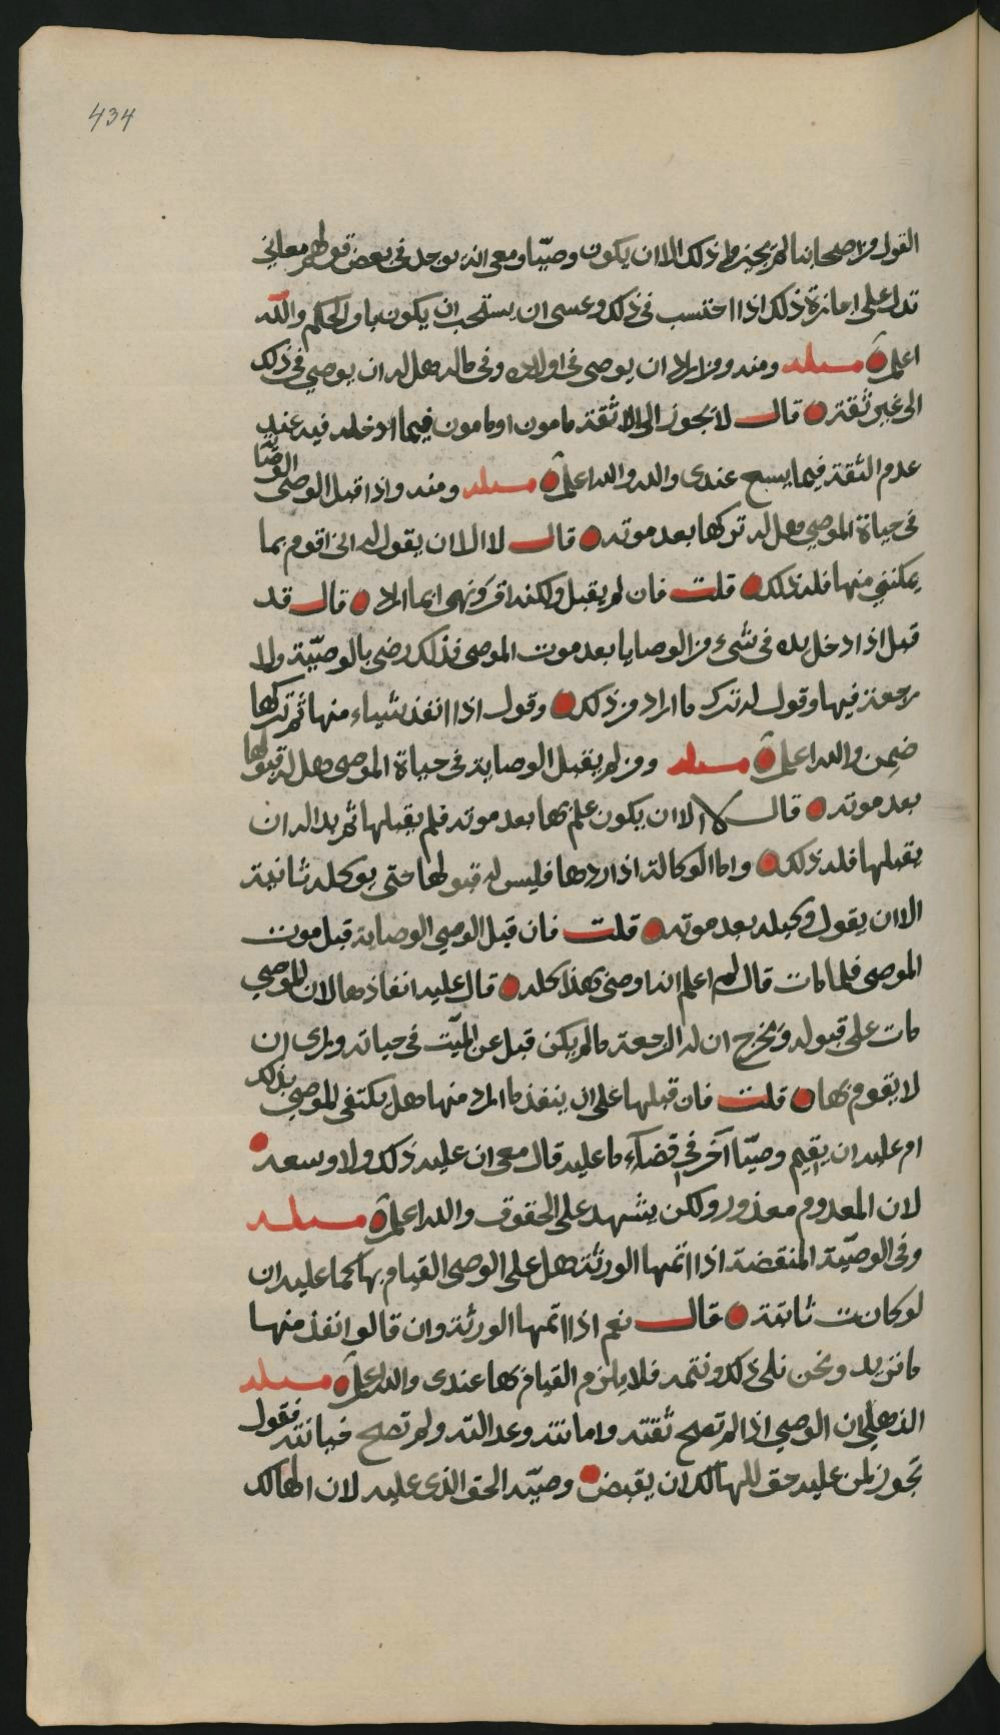 434
القول من اصحابنا لم يجيزوا ذلك الا ان يكون وصيّا ومعي انه يوجد في بعض قولهم معاني
تدل على اجازة ذلك اذا احتسب في ذلك وعسى ان يستحب ان يكون براي الحكم والله
اعلم مسله ومنه ومن اراد ان يوصي في اولاده وفي ماله هل له ان يوصي في ذلك
الى غير ثقة قال لا يجوز الى الا ثقة مامون او مامون فيما ادخله فيه عند
عدم الثقة فيما يسع عندي والله والله اعلم مسله ومنه واذا قبل الوصي الوصايا
في حياة الموصي هل له تركها بعد موته قال لا الا ان يقول له اني اقوم بما
يمكنني منها فله ذلك قلت فان لم يقبل ولكنه اقر ونهى ايما اراد قال قد
قيل اذا دخل يده في شيء من الوصايا بعد موت الموصي فذلك رضى بالوصيّة ولا
رجعة فيها وقول له ترك ما اراد من ذلك وقول اذا انفذ شيئاء منها ثم تركها
ضمن والله اعلم مسله ومن لم يقبل الوصاية في حياة الموصي هل له قبولها
بعد موته قال لا الا ان يكون علم بها بعد موته فلم يقبلها ثم بدا له ان
يقبلها فله ذلك واما الوكالة اذا ردها فليس له قبولها حتى يوكله ثانية
الا ان يقول وكيله بعد موته قلت فان قبل الوصي الوصاية قبل موت
الموصي فلما مات قال لهم اعلم انه اوصى بهذا كله قال عليه انفاذها لان الموصي
مات على قبوله ويخرج ان له الرجعة ما لم يكن قبل عن الميّت في حياته ويرى ان
لا يقوم بها قلت فان قبلها على ان ينفذ ما اراد منها هل يكتفي الموصي بذلك
ام عليه ان يقيم وصيّا آخر في قضآء ما عليه قال معي ان عليه ذلك ولا وسعه
لان المعدوم معذور ولكن يشهد على الحقوق والله اعلم مسله
وفي الوصيّة المنقضة اذا اتمها الورثة هل على الوصي القيام بها كما عليه ان
لو كانت ثابتة قال نعم اذا اتمها الورثة وان قالوا نفذ منها
ما تريد ونحن نلي ذلك ونتمه فلا يلزم القيام بها عندي والله اعلم مسله
الذهلي ان الوصي اذا لم تصح ثقته وامانته وعدالته ولم تصح خيانته فقول
تجوز لمن عليه حق للهالك ان يقبض وصيّه الحق الذي عليه لان الهالك